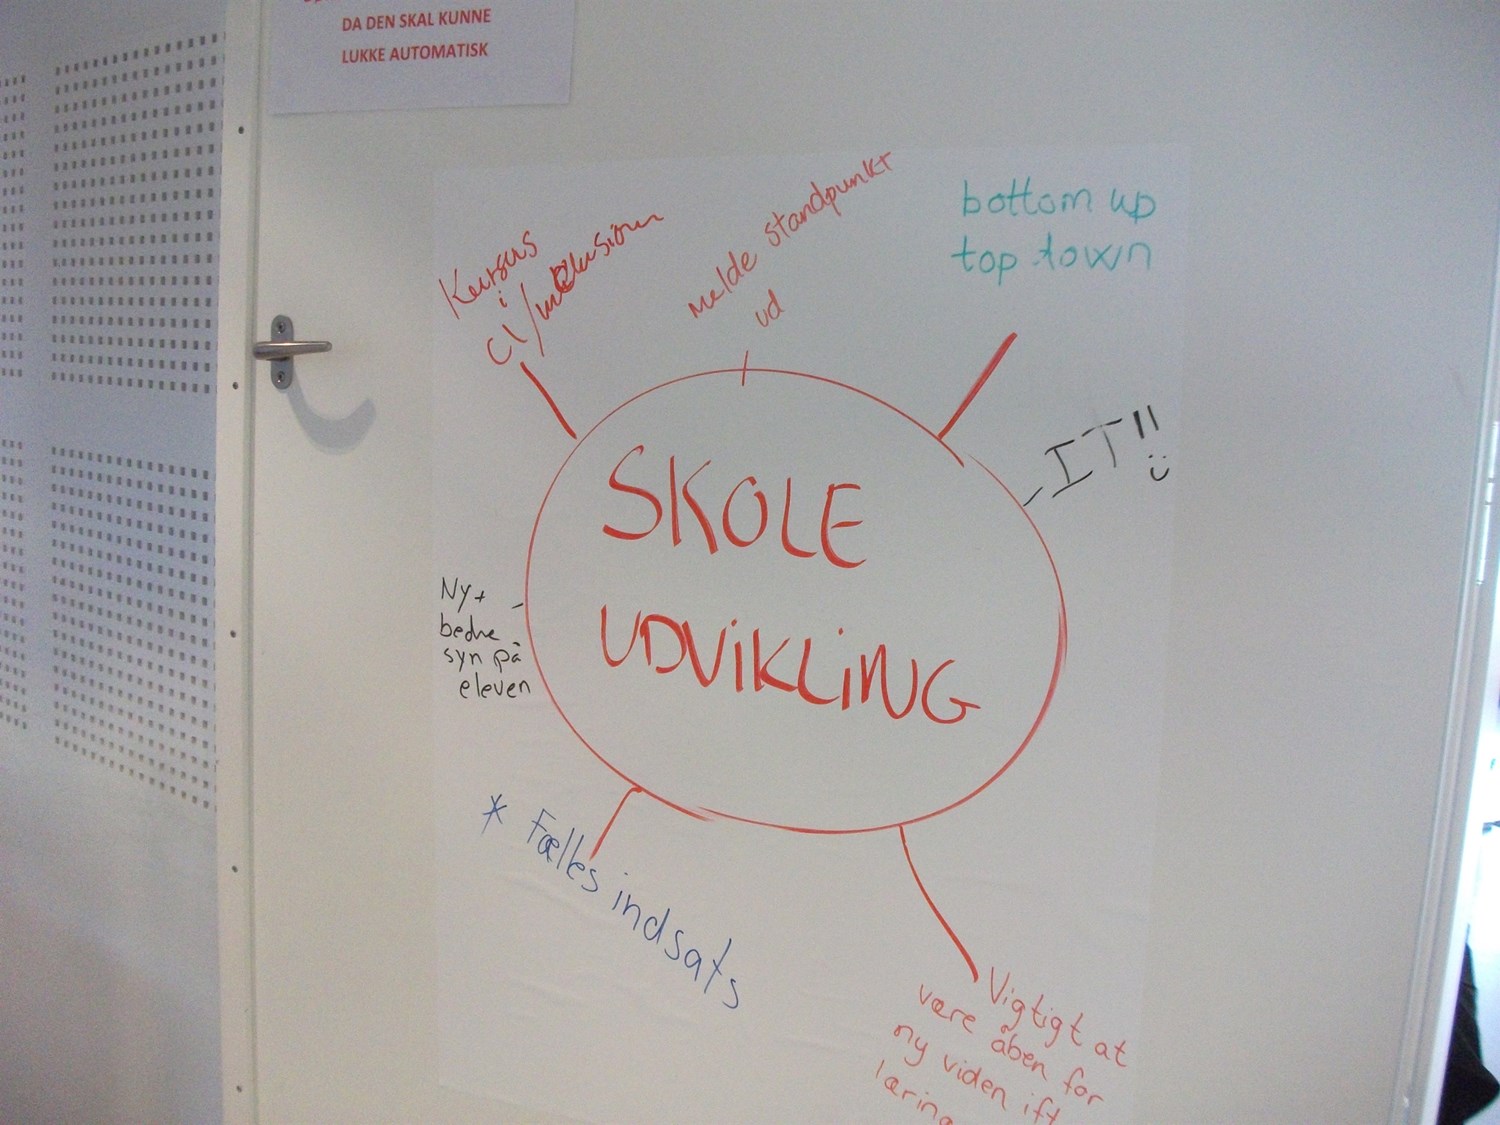 DA DEN SKAL KUNNE
LUKKE AUTOMATISK
Kursus
i
CL/inklusion
melde standpunkt
ud
bottom up
top down
IT!!
SKOLE
UDVIKLING
Ny+
bedre
syn på
eleven
* Fælles indsats
Vigtigt at
være åben for
ny viden ift
læring